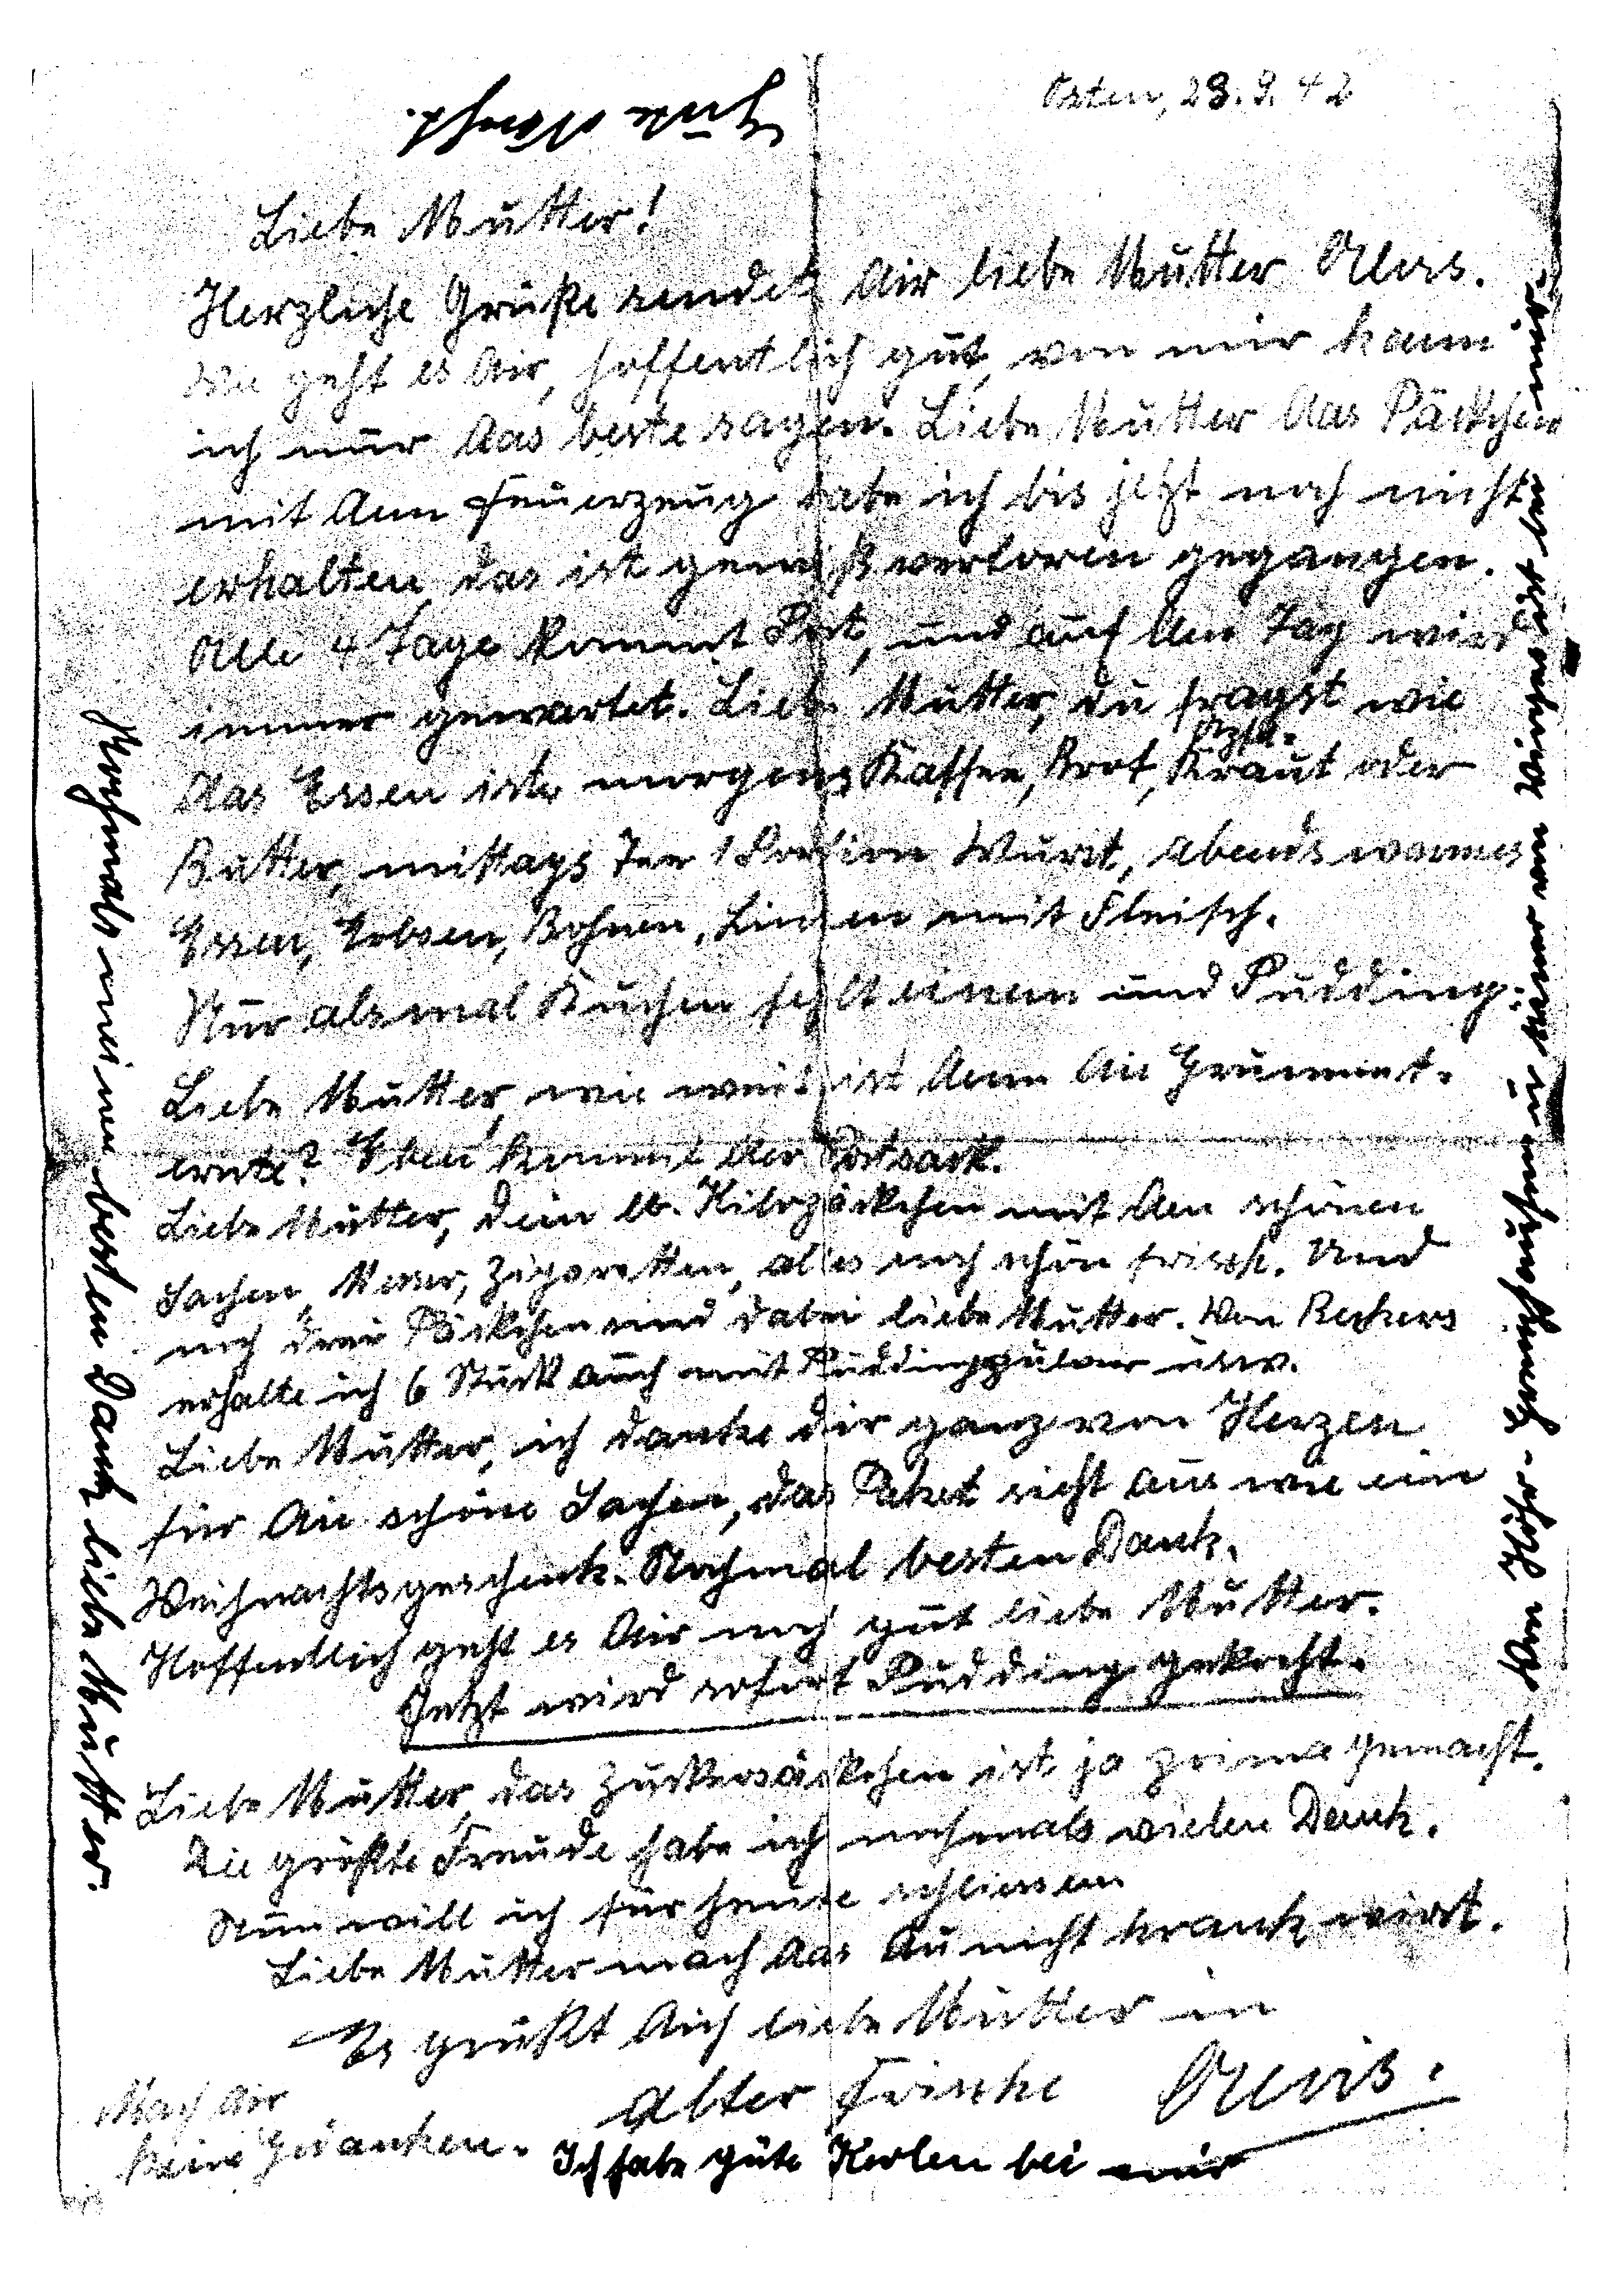 Osten, 28.9.42
Gute Nacht.
Liebe Mutter!
Herzliche Grüße sendet dir liebe Mutter Alois.
Wie geht es dir, hoffentlich gut, von mir kann
ich nur das beste sagen. Liebe Mutter das Päckchen
mit dem Feuerzeug habe ich bis jetzt noch nicht
erhalten, das ist gewiß verloren gegangen.
Alle 4 Tage kommt Post, und auf den Tag wird
immer gewartet. Liebe Mutter, du fragst wie
das Essen ist, morgens Kaffee, Brot, Kraut oder
Butter, mittags Tee 1 Portion Wurst, abends warmes
Essen, Erbsen, Bohnen, Linsen mit Fleisch.
Nur alsmal Kuchen fehlt einem und Pudding.
Liebe Mutter, wie weit ist denn die Grummet-
ernte? Eben kommt der Postsack.
Liebe Mutter, dein lb. Kilopäckchen mit den schönen
Sachen, Messer, Zigaretten, alles noch schön frisch. Und
noch drei Päckchen sind dabei liebe Mutter. Von Beckers
erhalte ich 6 Stück auch mit Puddingpulver usw.
Liebe Mutter, ich danke dir ganz von Herzen
für die schöne Sachen, das Paket sieht aus wie ein
Weihnachtsgeschenk. Nochmal besten Dank.
Hoffentlich geht es dir noch gut liebe Mutter.
Jetzt wird sofort Pudding gekocht.
Liebe Mutter, das Zuckersäckchen ist ja prima gemacht.
Die größte Freude habe ich nochmals vielen Dank.
Nun will ich für heute schliessen
Liebe Mutter mach das du nicht krank wirst.
Es grüßt dich liebe Mutter in
alter Frische Alois.
Mach dir
keine Gedanken.
Ich habe gute Kerlen bei mir
Nochmals meinen besten Dank liebe Mutter.
Von Höhr-Grenzhausen u einer von Wirges ist bei mir.